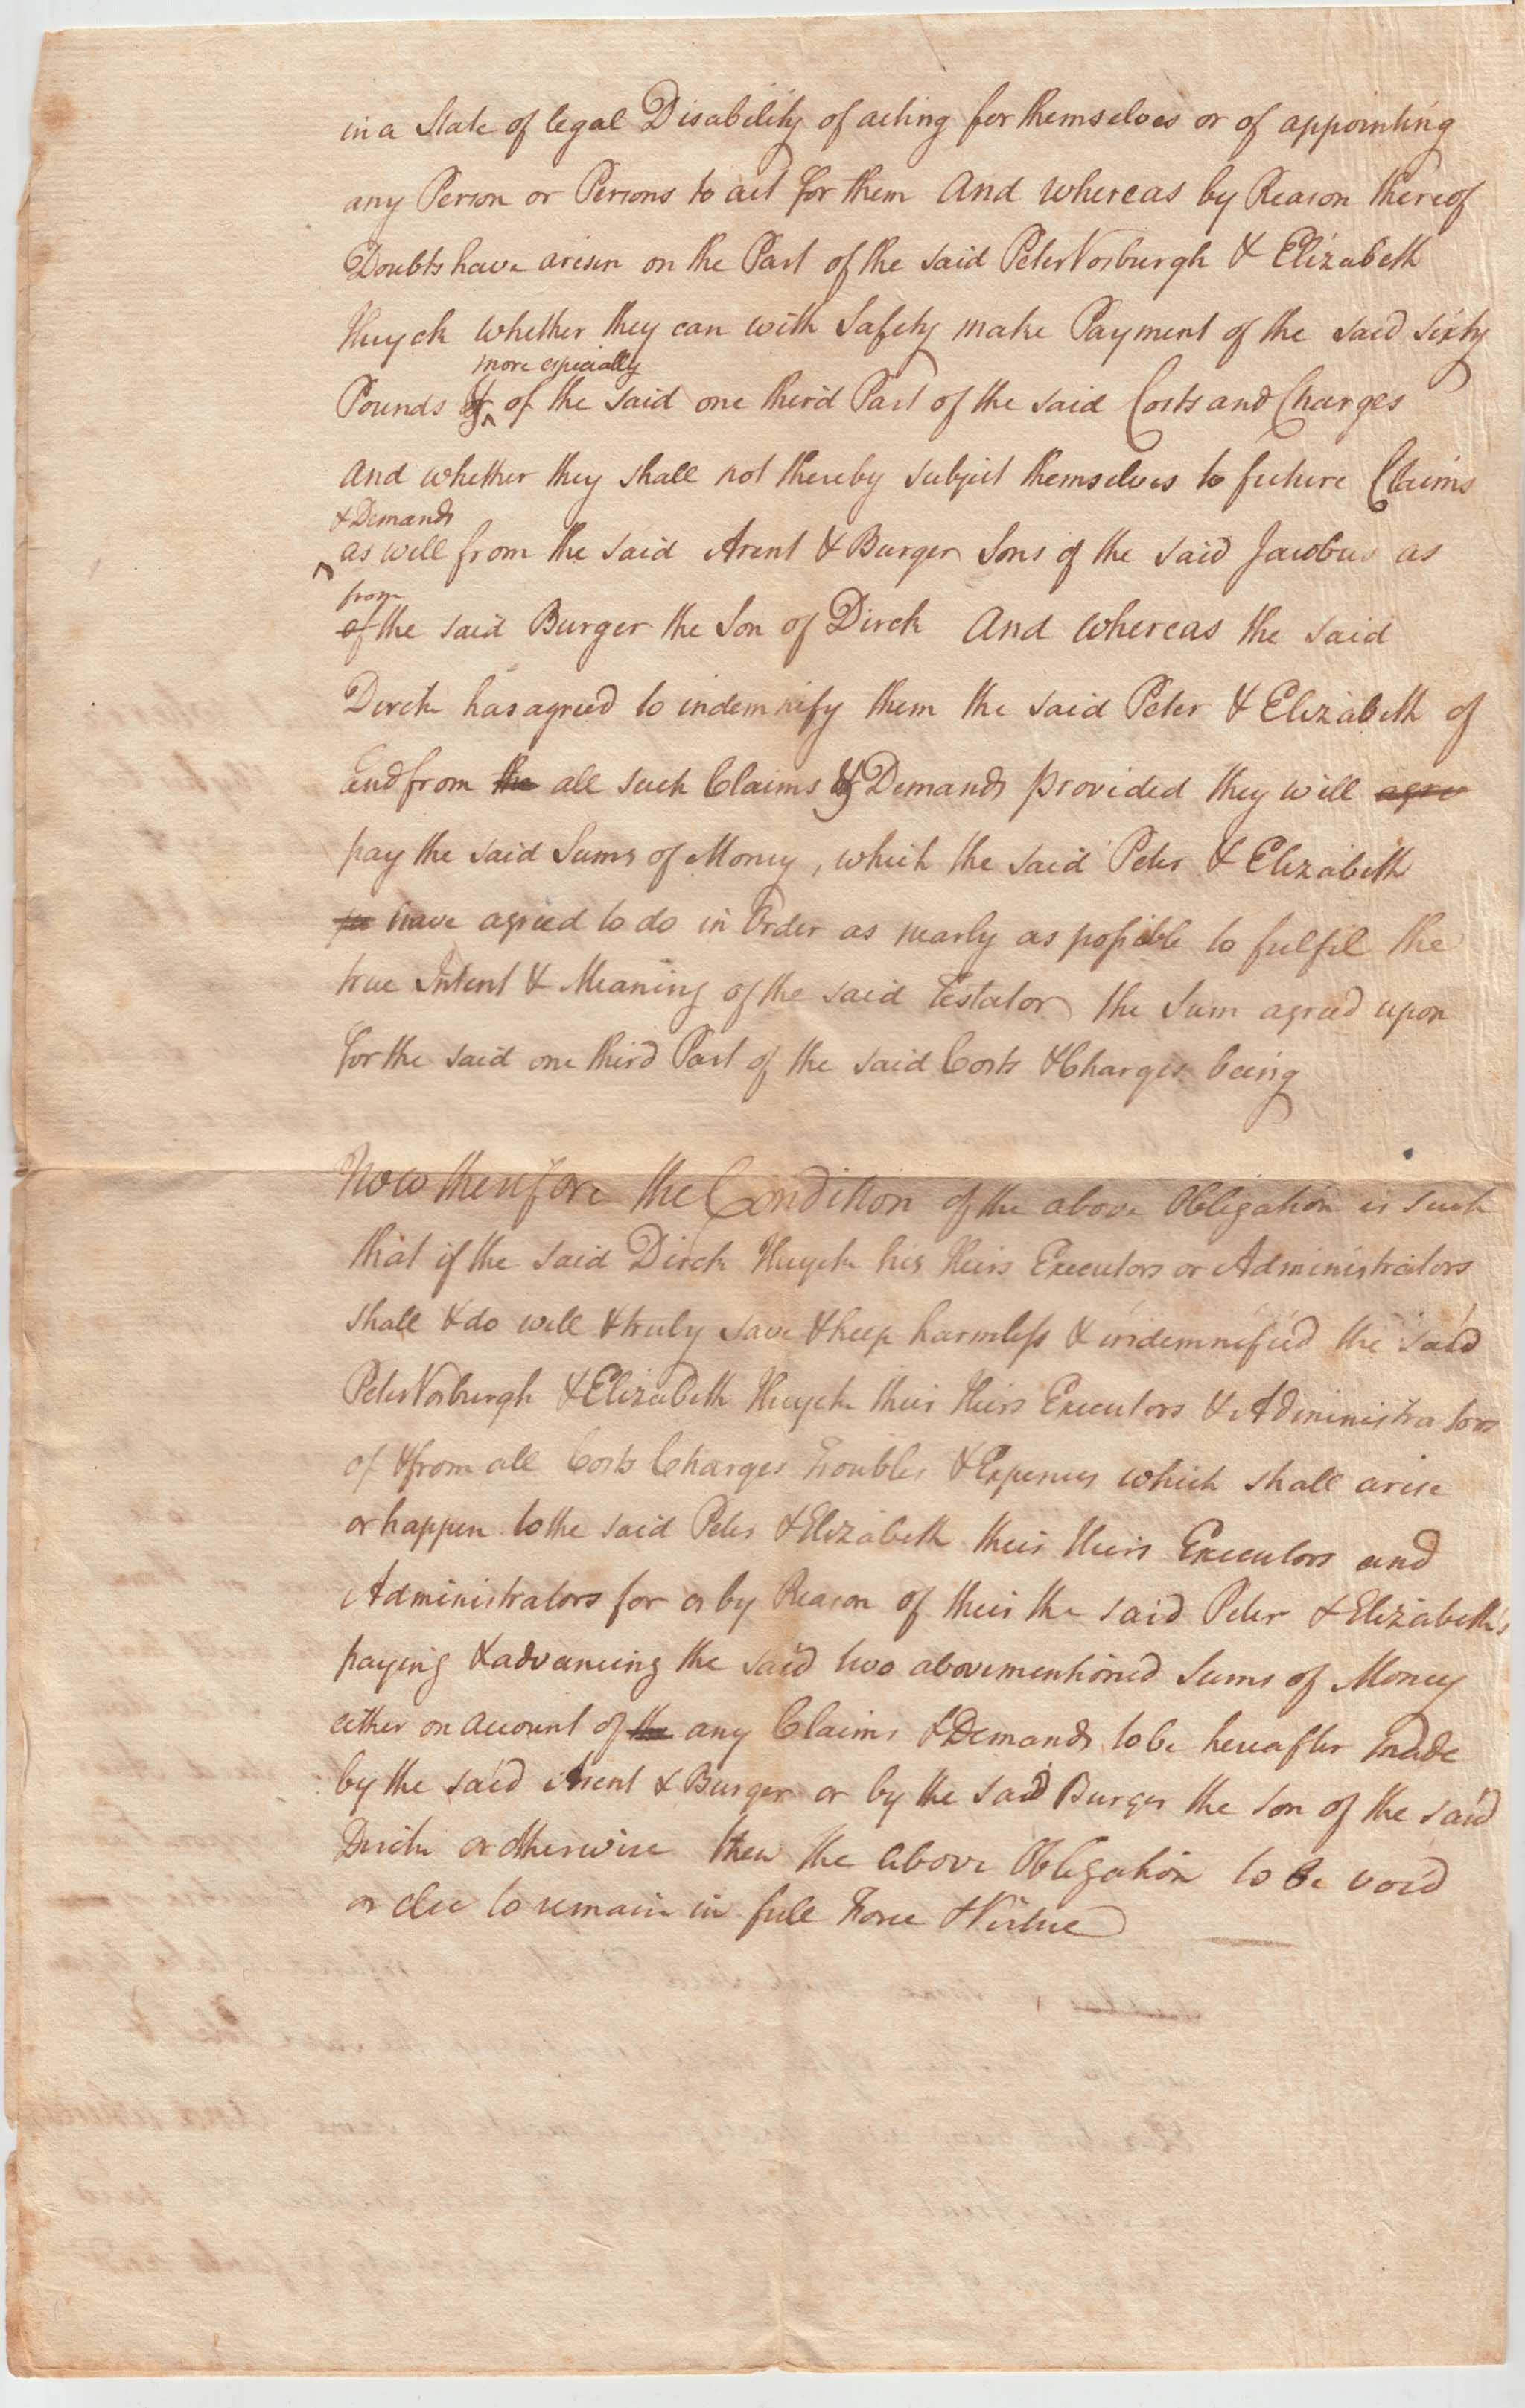 in a State of legal Disability of acting for themselves or of appointing
any Person or Persons to act for them And whereas by Reason thereof
Doubts have arisen on the Part of the said Peter Vosburgh & Elizabeth
Huyck whether they can with Safety make Payment of the said sixty
more especially
Pounds & of the said one third Part of the said Costs and Charges
And whether they shall not thereby subject themselves to future Claims
& Demands
as well from the said Arent & Burger Sons of the said Jacobus as
from
of the said Burger the Son of Dirck And whereas the said
Dirck has agreed to indemnify them the said Peter & Elizabeth of
and from the all such Claims & Demands provided they will agree
pay the said Sums of Money, which the said Peter & Elizabeth
have agreed to do in Order as nearly as possible to fulfil the
true Intent & Meaning of the said Testator the Sum agreed upon
for the said one third Part of the said Costs & Charges being
Now therefore the Condition of the above Obligation is such
that if the said Dirck Huyck his Heirs Executors or Administrators
shall & do well & truly save & keep harmless & indemnified the said
Peter Vosburgh & Elizabeth Huyck their Heirs Executors & Administrators
of & from all Costs Charges Troubles & Expences which shall arise
or happen to the said Peter & Elizabeth their Heirs Executors and
Administrators for or by Reason of their the said Peter & Elizabeth's
paying & advancing the said two abovementioned Sums of Money
either on Account of the any Claims & Demands to be hereafter made
by the said Arent & Burger or by the said Burger the Son of the said
Dirck or otherwise then the above Obligation to be void
or else to remain in full Force & Virtue